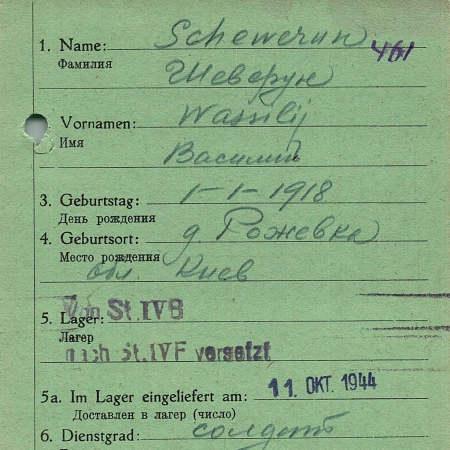 1. Name: Schewerun 461
Фамилия Шеверун
Vornamen: Wassilij
Имя
Василий
3. Geburtstag: 1-1-1918
День рождения
4. Geburtsort: д. Рожевка
Место рождения
обл. Киев
Von St.IVB
5. Lager:
Лагер
nach St.IVF versetzt
5a. Im Lager eingeliefert am: 11. OKT. 1944
Доставлен в лагер (число)
6. Dienstgrad: солдат